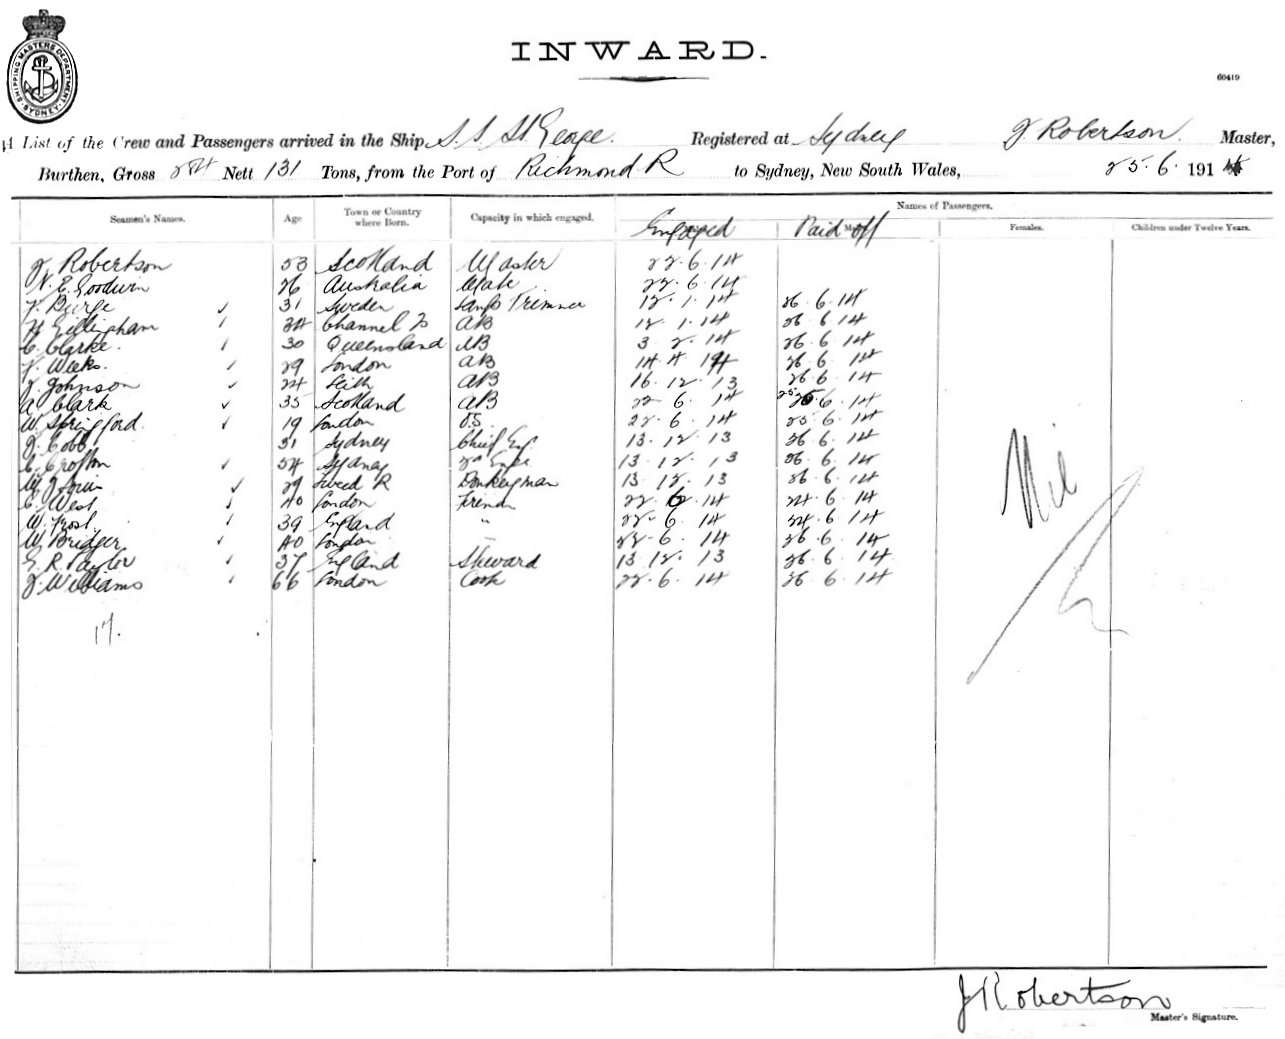 SHIPPING MASTERS DEPARTMENT. SYDNEY.
INWARD.
60419
A List of the Crew and Passengers arrived in the Ship S.S. St George. Registered at Sydney J Robertson. Master,
Burthen, Gross Nett 131 Tons, from the Port of Richmond R to Sydney, New South Wales, 25.6.1914
Seamen's Names. Age Town or Country where Born. Capacity in which engaged. Names of Passengers.
Engaged Paid off Females. Children under Twelve Years.
J Robertson 53 Scotland Master 22.6.14
E. Goodwin 26 Australia Mate 22.6.14
31 Sweden Lamp Trimmer 12.1.14 26.6.14
H Gillingham 34 Channel Is AB 12.1.14 26 6 14
C. Clarke. 30 Queensland AB 3 2.14 26 6 14
Weeks. 29 London AB 14 4 14 26 6 14
J Johnson 24 Leith AB 16.12.13 26 6 14
A Clark 35 Scotland AB 22 6.14 25 6 14
W. Springford. 19 London OS. 22.6.14 25 6 14
J. Cobb 31 Sydney Chief Eng. 13.12.13 26 6 14
C. Crofton 54 Sydney 2nd Engr 13.12.13 26 6 14
W J 29 Tweed R Donkeyman 13 12.13 26 6 14
C. West 40 London Fireman 22 6.14 24 6 14
W. Frost. 39 England " 22.6.14 24.6 14
W. Bridger 40 London " 22.6.14 26.6.14
E. R. Taylor 37 England Steward 13.12.13 26.6.14
J. Williams 66 London Cook 22.6.14 26 6.14
Nil
17.
J Robertson
Master's Signature.